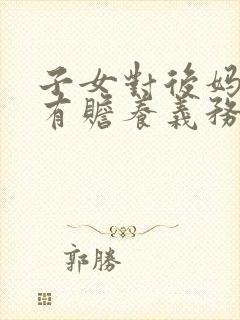 子女對後妈
有贍養義務
郭勝